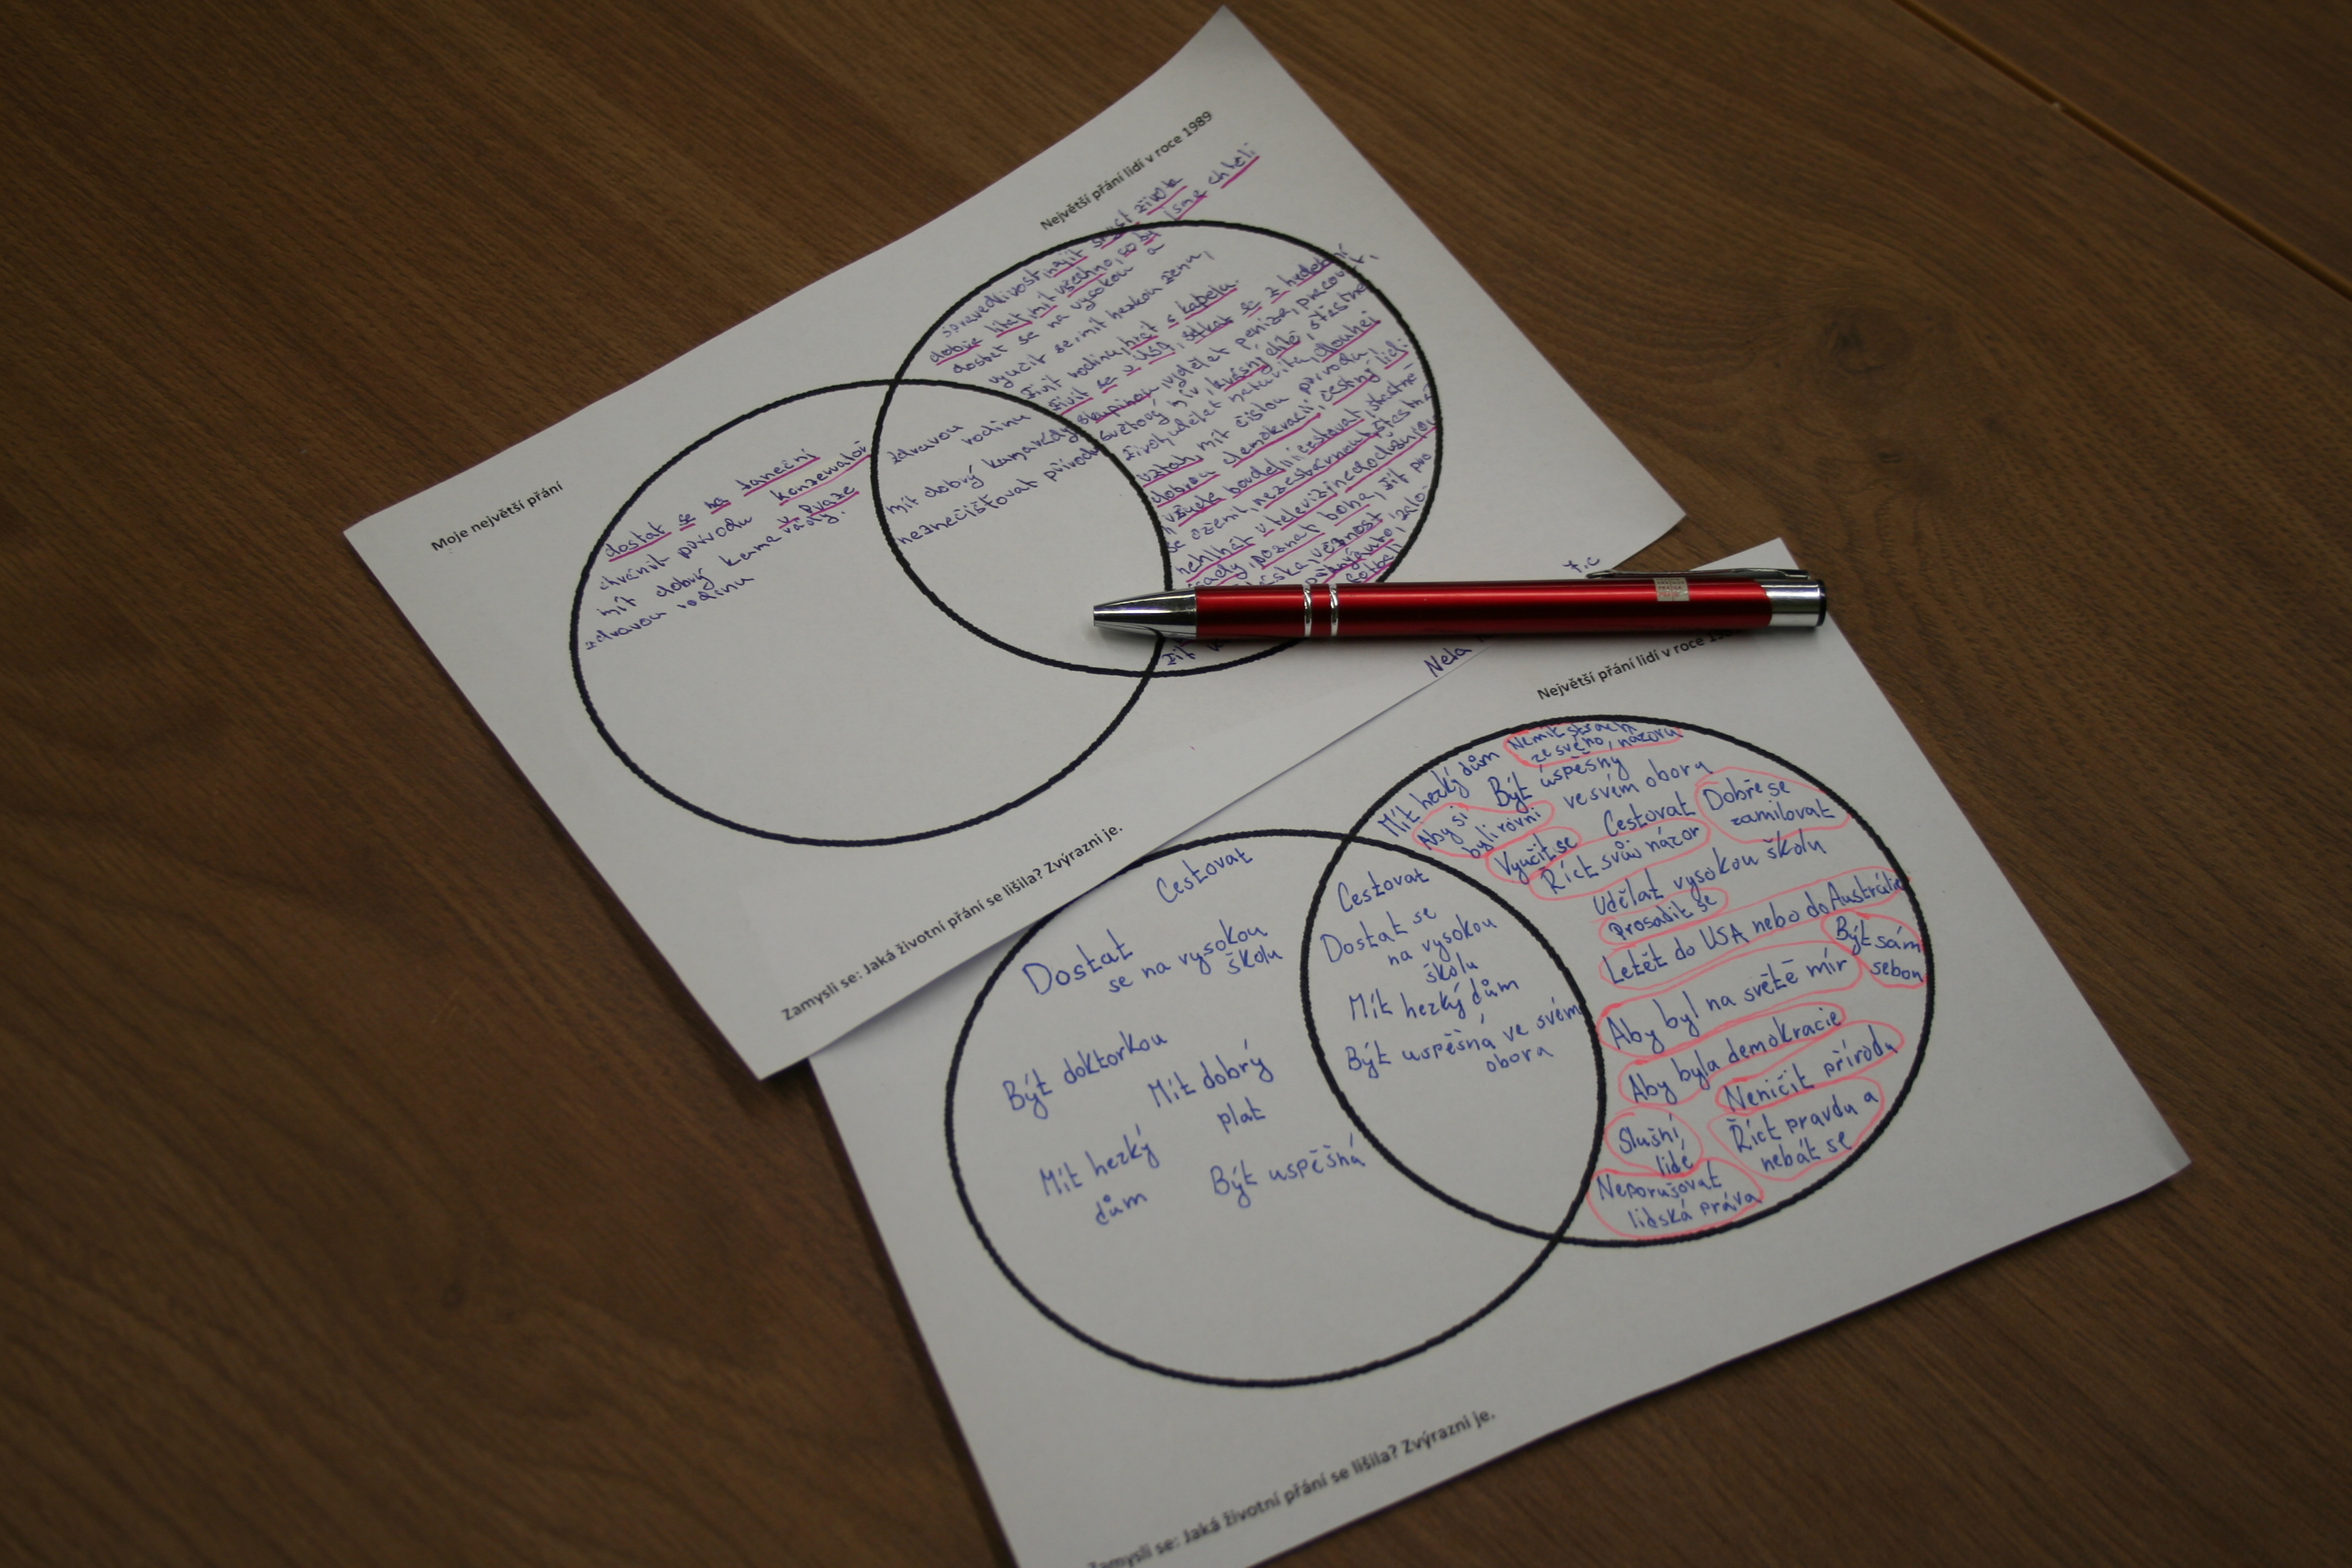 Největší přání lidí v roce 1989
Moje největší přání
dostat se na taneční
konzervatoř
v Praze
chránit přírodu
mít dobrý kamarády.
zdravou rodinu
zdravou rodinu
mít dobrý kamarády
neznečišťovat přírodu
spravedlivost, najít smysl života
dobře, mít všechno, co by jsme chtěli
dostat se na vysokou a
vyučit se, mít hezkou ženu,
živit rodinu, hrát s kapelou.
živit se v USA, setkat se s hudební
skupinou, vydělat peníze, pracovat,
světový mír, krásný
život, udělat maturitu, dlouhej
vztah, mít čistou přírodu,
dobrou demokracii, čestný lidi
cestovat
se oženit, nezestárnout, šťastně
nehlhát v televizi
poznat boha, žít pro
věčnost
7.C
Nela
Zamysli se: Jaká životní přání se lišila? Zvýrazni je.
Největší přání lidí v roce
Mít hezký dům
Nemít strach
ze svého názoru
Být úspěšný
ve svém oboru
Aby si
byli rovni
Cestovat
Dobře se
zamilovat
Vyučit se
Říct svůj názor
Udělat vysokou školu
Prosadit se
Letět do USA nebo do Austrálie
Být sám
sebou
Aby byl na světě mír
Aby byla demokracie
Neničit přírodu
Slušní
lidé
Říct pravdu a
nebát se
Neporušovat
lidská práva
Cestovat
Dostat se
na vysokou
školu
Mít hezký dům
Být uspěšná ve svém
obora
Cestovat
Dostat
se na vysokou
školu
Být doktorkou
Mít dobrý
plat
Mít hezký
dům
Být uspěšná
Zamysli se: Jaká životní přání se lišila? Zvýrazni je.